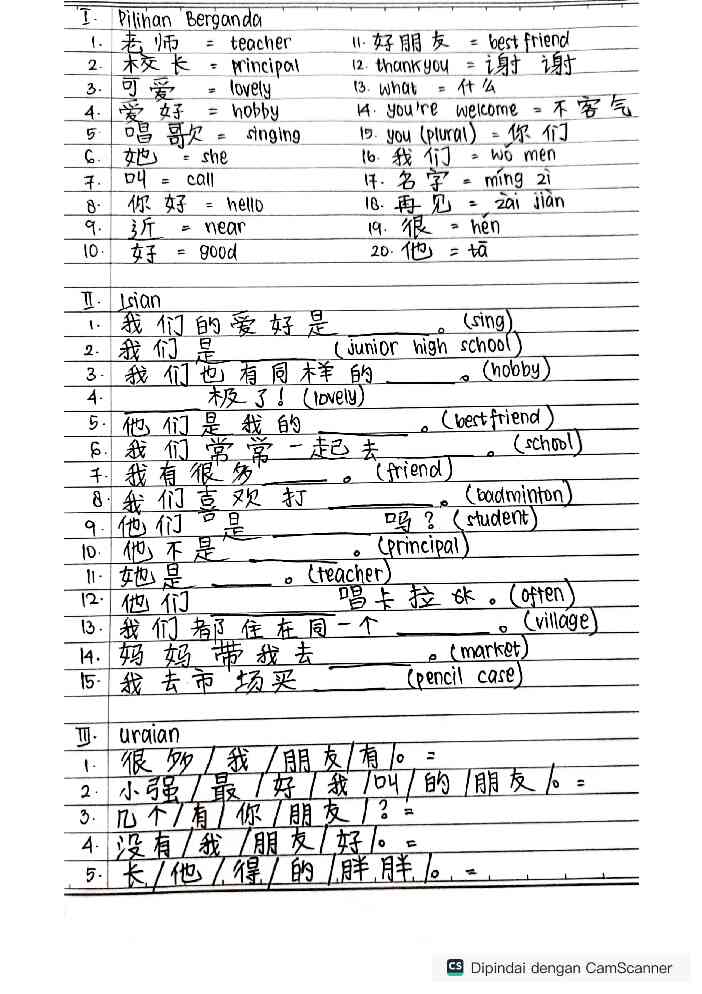 I. Pilihan Berganda
1. 老师 = teacher
2. 校长 = principal
3. 可爱 = lovely
4. 爱好 = hobby
5. 唱歌 = singing
6. 她 = she
7. 叫 = call
8. 你好 = hello
9. 近 = near
10. 好 = good
11. 好朋友 = best friend
12. thankyou = 谢谢
13. what = 什么
14. you're welcome = 不客气
15. you (plural) = 你们
16. 我们 = wǒ men
17. 名字 = míng zì
18. 再见 = zài jiàn
19. 很 = hěn
20. 他 = tā
II. Isian
1. 我们的爱好是 ______。(sing)
2. 我们是 ______ (junior high school)
3. 我们也有同样的 ______。(hobby)
4. ______ 极了! (lovely)
5. 他们是我的 ______。(bestfriend)
6. 我们常常一起去 ______。(school)
7. 我有很多 ______。(friend)
8. 我们喜欢打 ______。(badminton)
9. 他们是 ______ 吗? (student)
10. 他不是 ______。(principal)
11. 她是 ______。(teacher)
12. 他们 ______ 唱卡拉OK。(often)
13. 我们都住在同一个 ______。(village)
14. 妈妈带我去 ______。(market)
15. 我去市场买 ______ (pencil case)
III. uraian
1. 很多/我/朋友/有/。=
2. 小强/最/好/我/叫/的/朋友/。=
3. 几个/有/你/朋友/? =
4. 没有/我/朋友/好/。=
5. 长/他/得/的/胖胖/。=
CS Dipindai dengan CamScanner